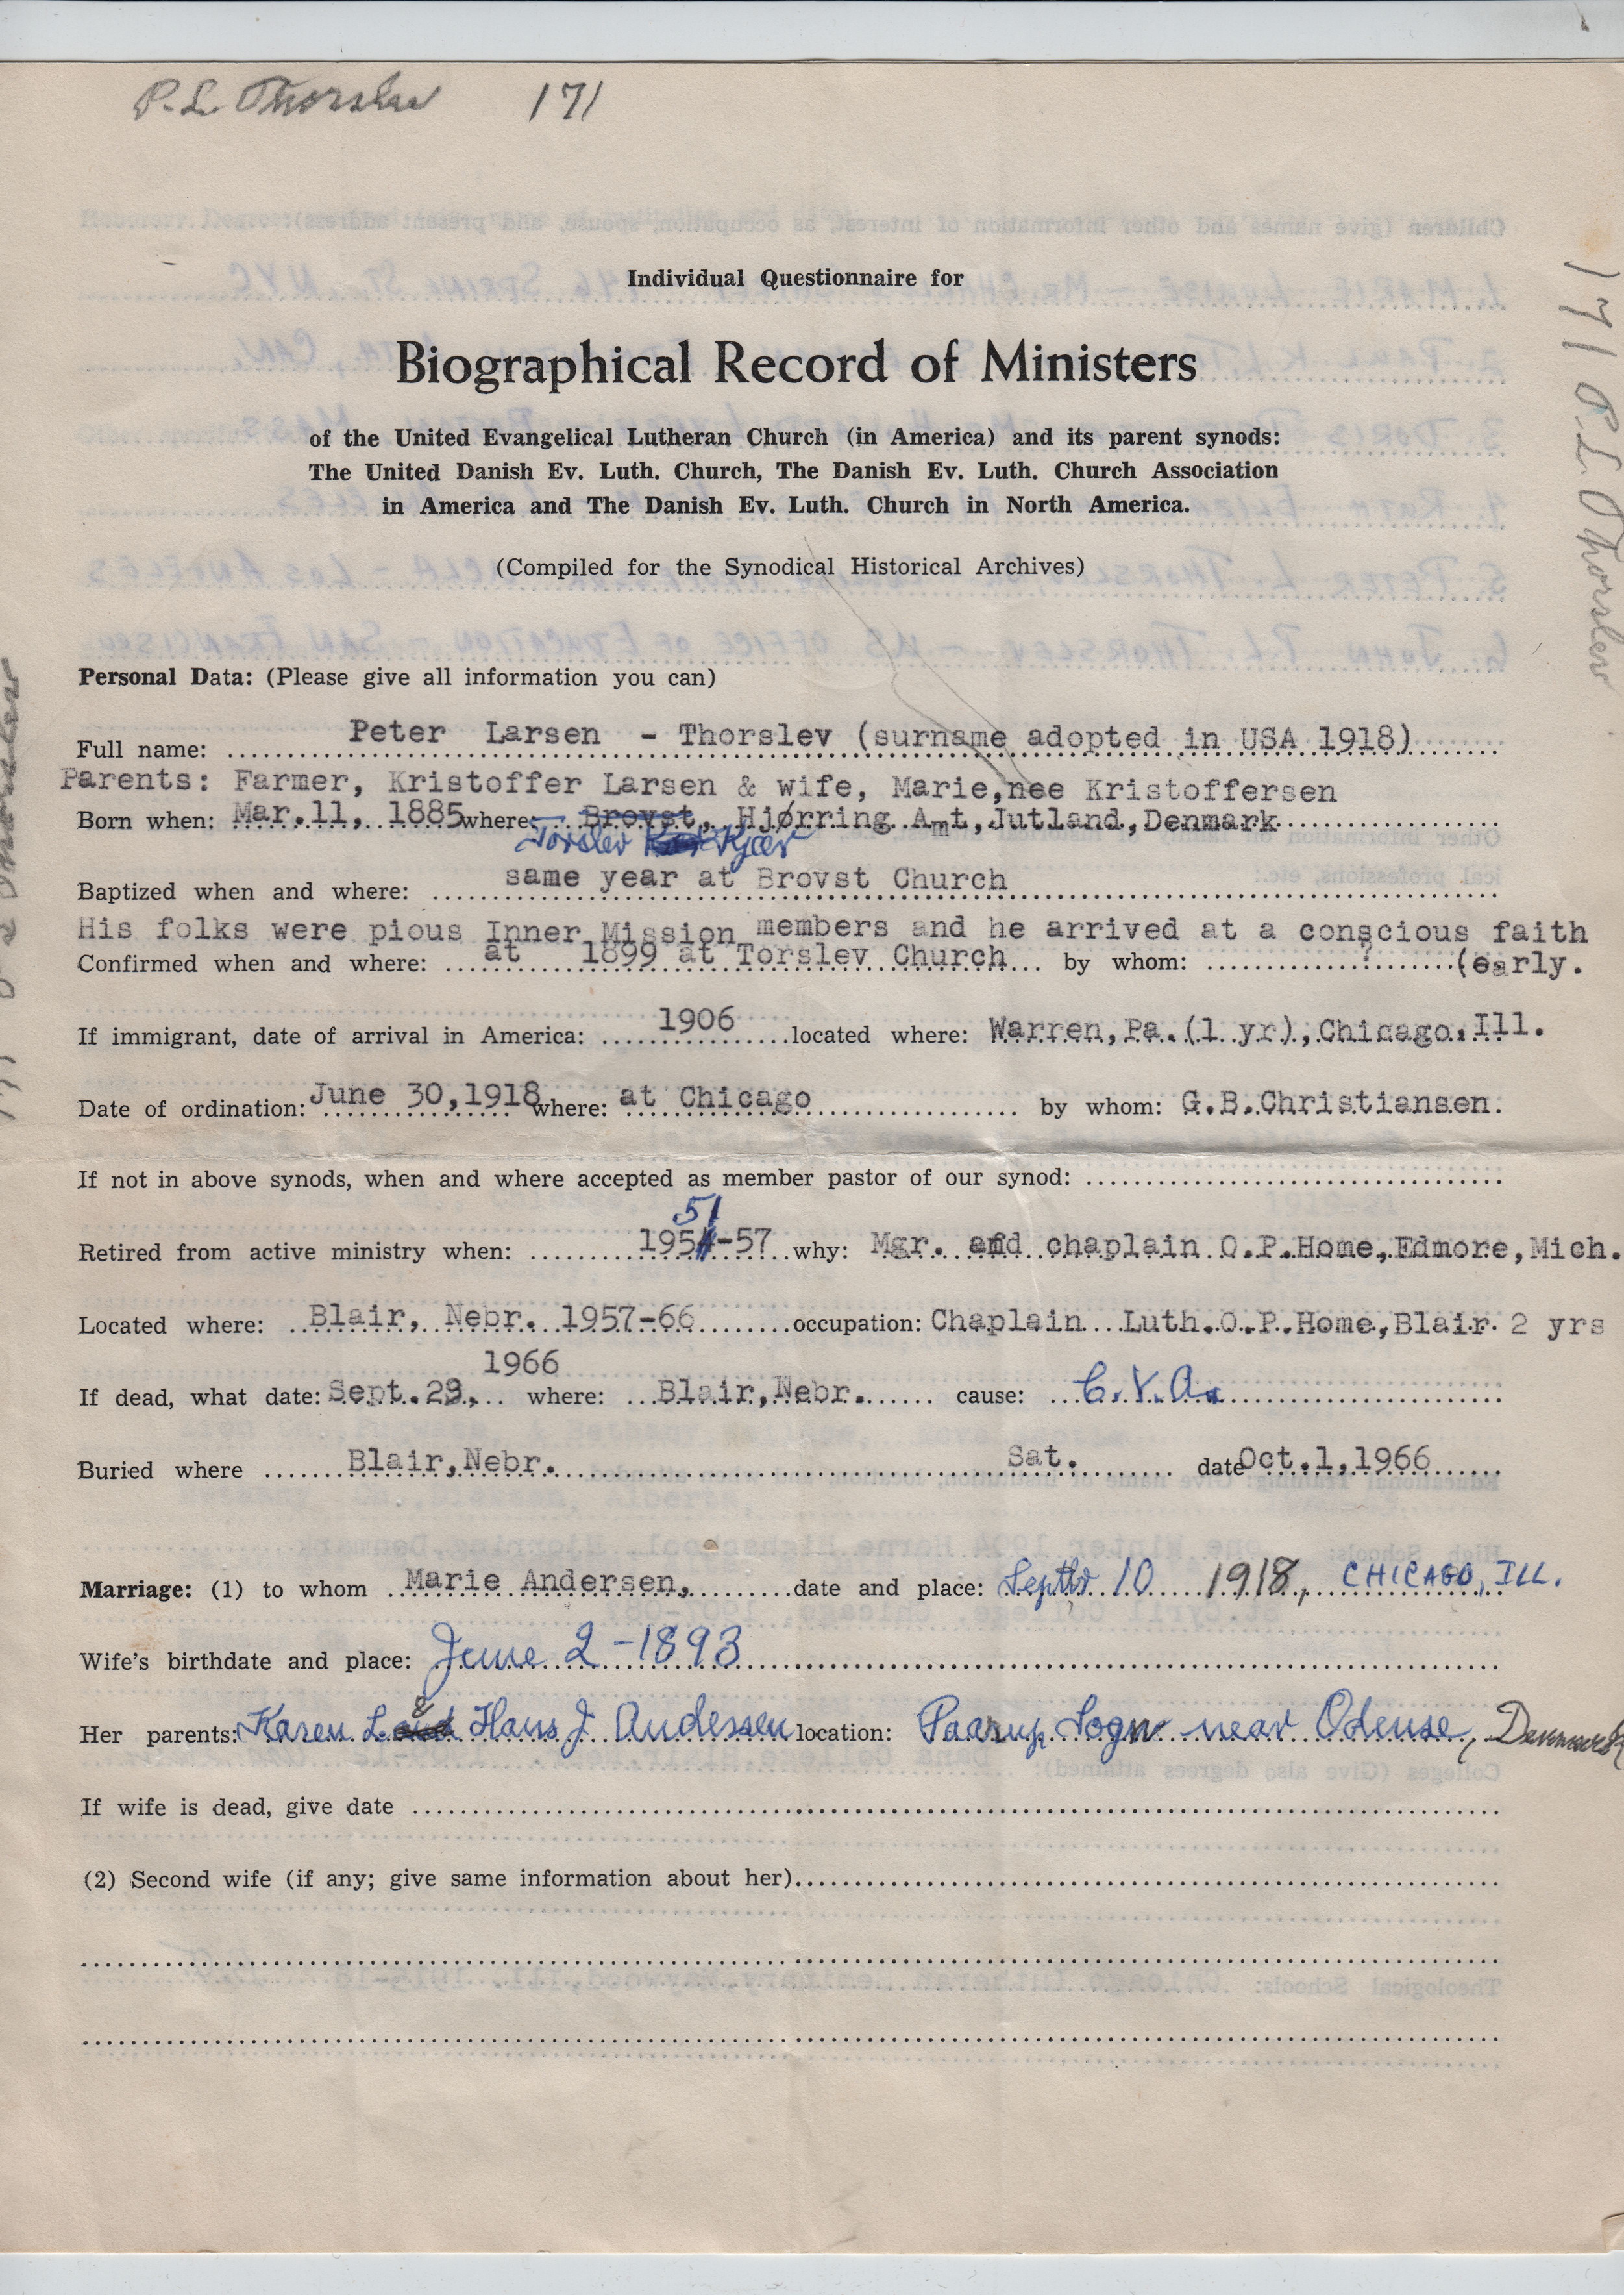 P.L. Thorslev 171
171 P.L. Thorslev
Individual Questionnaire for
Biographical Record of Ministers
of the United Evangelical Lutheran Church (in America) and its parent synods:
The United Danish Ev. Luth. Church, The Danish Ev. Luth. Church Association
in America and The Danish Ev. Luth. Church in North America.
(Compiled for the Synodical Historical Archives)
Personal Data: (Please give all information you can)
Full name: Peter Larsen - Thorslev (surname adopted in USA 1918)
Parents: Farmer, Kristoffer Larsen & wife, Marie, nee Kristoffersen
Born when: Mar.11, 1885 where: Brovst, Hjørring Amt, Jutland, Denmark
Torslev Kjær
Baptized when and where: same year at Brovst Church
His folks were pious Inner Mission members and he arrived at a conscious faith
Confirmed when and where: at 1899 at Torslev Church by whom: ? (early.
If immigrant, date of arrival in America: 1906 located where: Warren, Pa. (1 yr), Chicago, Ill.
Date of ordination: June 30, 1918 where: at Chicago by whom: G.B.Christiansen.
If not in above synods, when and where accepted as member pastor of our synod:
51
Retired from active ministry when: 1954-57 why: Mgr. and chaplain O.P.Home, Edmore, Mich.
Located where: Blair, Nebr. 1957-66 occupation: Chaplain Luth.O.P.Home, Blair 2 yrs
1966
If dead, what date: Sept.29, where: Blair, Nebr. cause: C.V.A.
Buried where Blair, Nebr. Sat. date Oct.1, 1966
Marriage: (1) to whom Marie Andersen, date and place: Septbr 10 1918, CHICAGO, ILL.
Wife's birthdate and place: June 2 - 1893
Her parents: Karen L. & Hans J. Andersen location: Paarup Sogn near Odense, Denmark
If wife is dead, give date
(2) Second wife (if any; give same information about her)